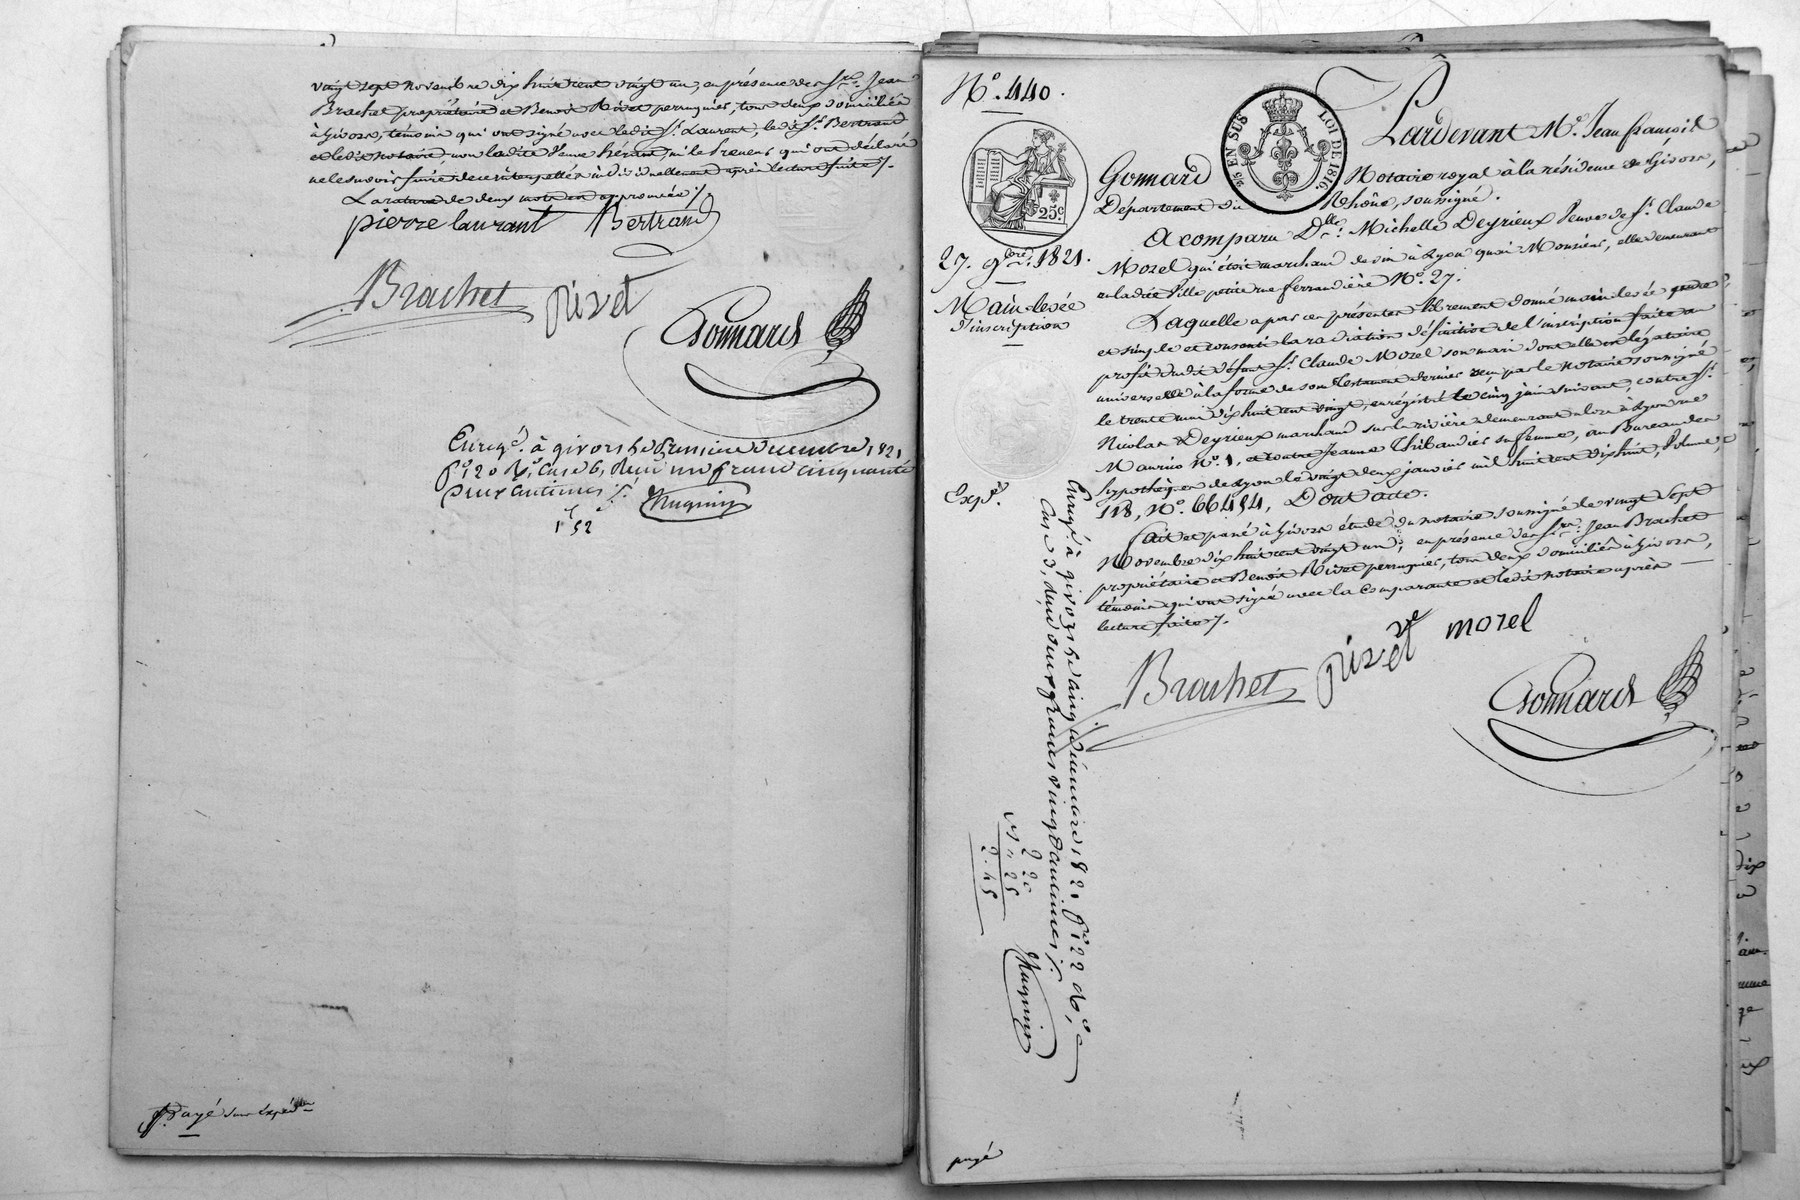 vingt sept novembre dix huit cent vingt un, en présence des Srs. Jean
Brachet propriétaire et Benoit Rivet perruquier, tous deux domiciliés
à Givors, témoins qui ont signé avec ledit Sr. Laurent, ledit Sr. Bertrand
et ledit notaire, non ladite Veuve ni le preneur qui ont déclaré
ne le savoir faire de ce interpellés individuellement après lecture faite ./.
La rature de deux mots est approuvée ./
pierre laurant Bertrand
Brachet rivet
Gonnard
Enregé. à givors le premier decembre 1821
fo. 120 Ro. Case 6, Reçu un franc cinquante
deux centimes ./.
1f 52c
payé sur expédon
No. 440.
25c
2/5 EN SUS
LOI DE 1816.
27. 9bre. 1821.
Main-levée
d'inscription
Expé.
Pardevant Me. Jean françois
Gonnard Notaire royal à la résidence de Givors,
Département du Rhône, soussigné.
A comparu Dlle. Michelle Deyrieux Veuve de Sr. Claude
Morel qui étoit marchand de vin à Lyon quai Monsieur, elle demeurant
en ladite Ville petite rue ferrandière No. 27.
Laquelle a par ces présentes librement donné main levée pure
et simple et consenti la radiation définitive de l'inscription faite au
profit dudit défunt Sr. Claude Morel son mari dont elle est légataire
universelle à la forme de son testament dernier reçu par le notaire soussigné
le trente mai dix huit cent vingt, enregistré le cinq juin suivant, contre Sr.
Nicolas Deyrieux marchand sur la rivière demeurant alors à Lyon rue
Maurico No. 1, et contre Jeanne Thibaudier sa femme, au Bureau des
hypothèques de Lyon le vingt deux janvier mil huit cent dix huit, Volume
118, No. 66484, Dont acte.
Fait et passé à Givors étude du notaire soussigné le vingt sept
Novembre dix huit cent vingt un, en présence des Srs. Jean Brachet
propriétaire et Benoit Rivet perruquier, tous deux domiciliés à Givors,
témoins qui ont signé avec la Comparante et ledit notaire après
lecture faite ./.
Brachet rivet ve morel
Gonnard
Enregé. à givors le cinq décembre 1821 fo. 122 Vo.
Case 3, Reçu deux francs vingt centimes ./.
2 20
25
2.45
payé